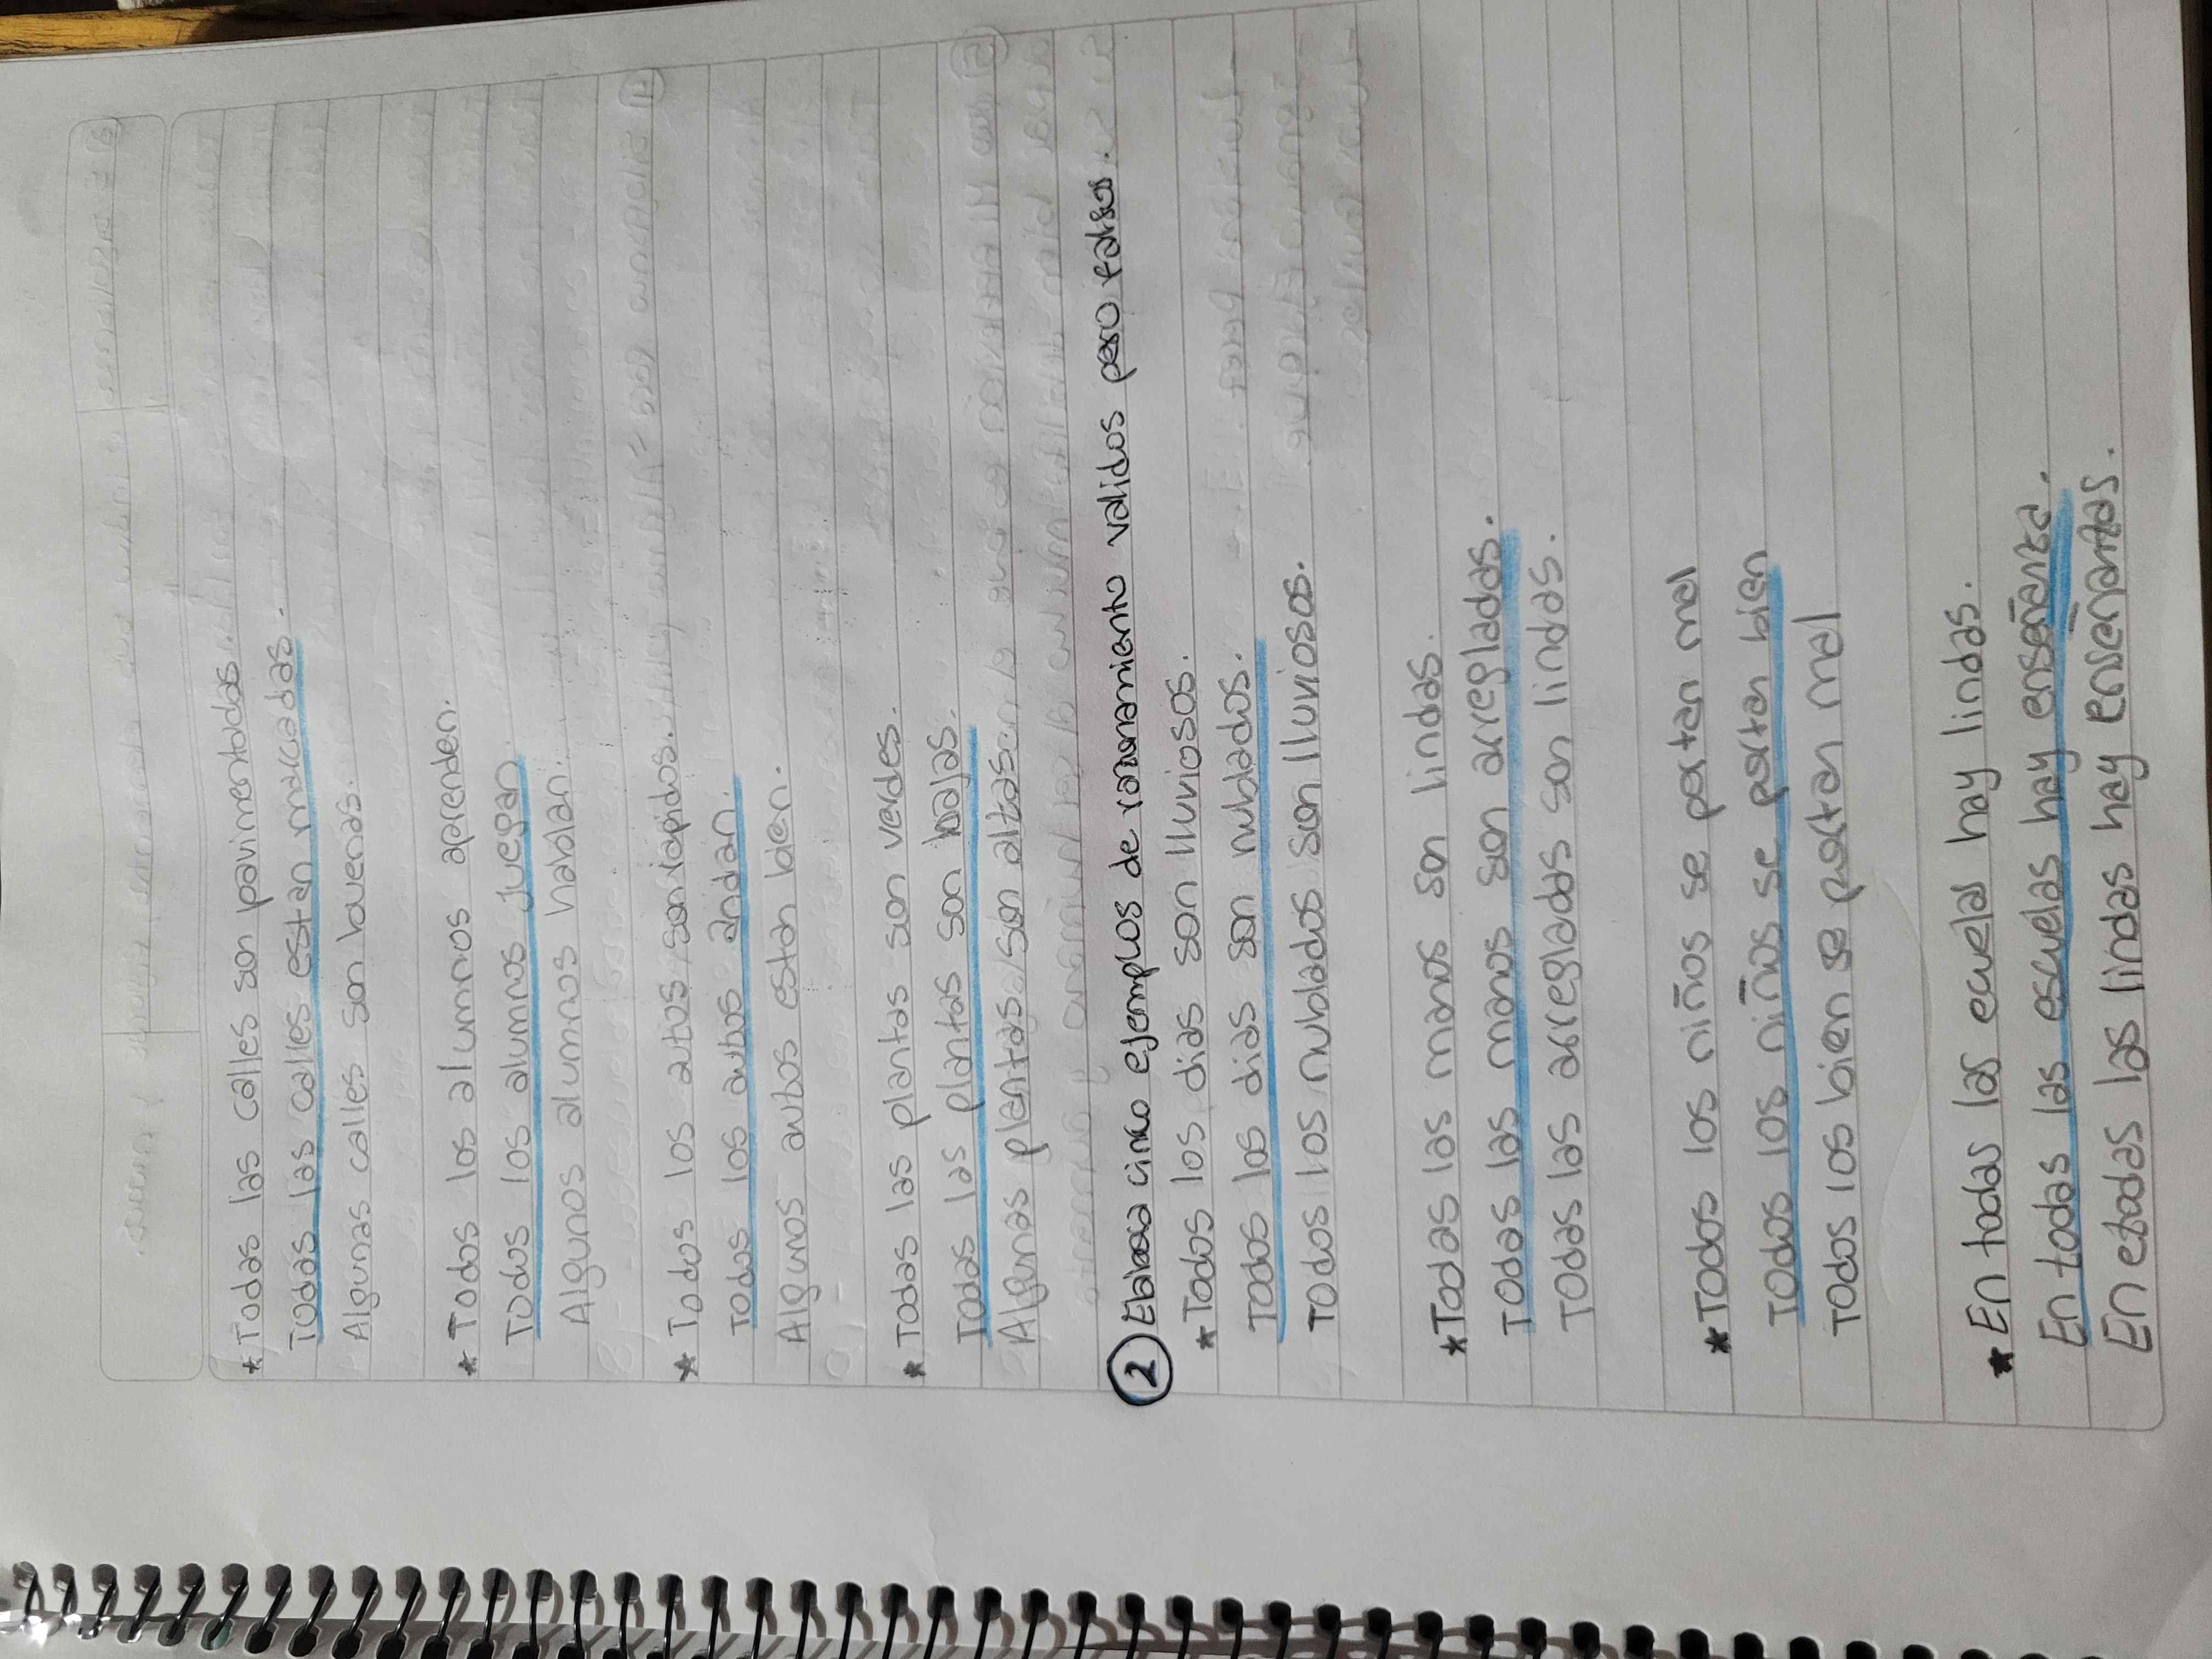 * Todas las calles son pavimentadas.
Todas las calles estan marcadas.
Algunas calles son buenas.
* Todos los alumnos aprenden.
Todos los alumnos juegan
Algunos alumnos hablan.
* Todos los autos son rapidos.
Todos los autos andan.
Algunos autos estan bien.
* Todas las plantas son verdes.
Todas las plantas son bajas.
Algunas plantas son altas
2 Elabora cinco ejemplos de razonamiento validos pero falsos.
* Todos los dias son lluviosos.
Todos los dias son nublados.
Todos los nublados son lluviosos.
* Todas las manos son lindas.
Todas las manos son arregladas.
Todas las arregladas son lindas.
* Todos los niños se portan mal
Todos los niños se portan bien
Todos los bien se portan mal
* En todas las ecuelas hay lindas.
En todas las escuelas hay enseñanza.
En etodas las lindas hay enseñantas.